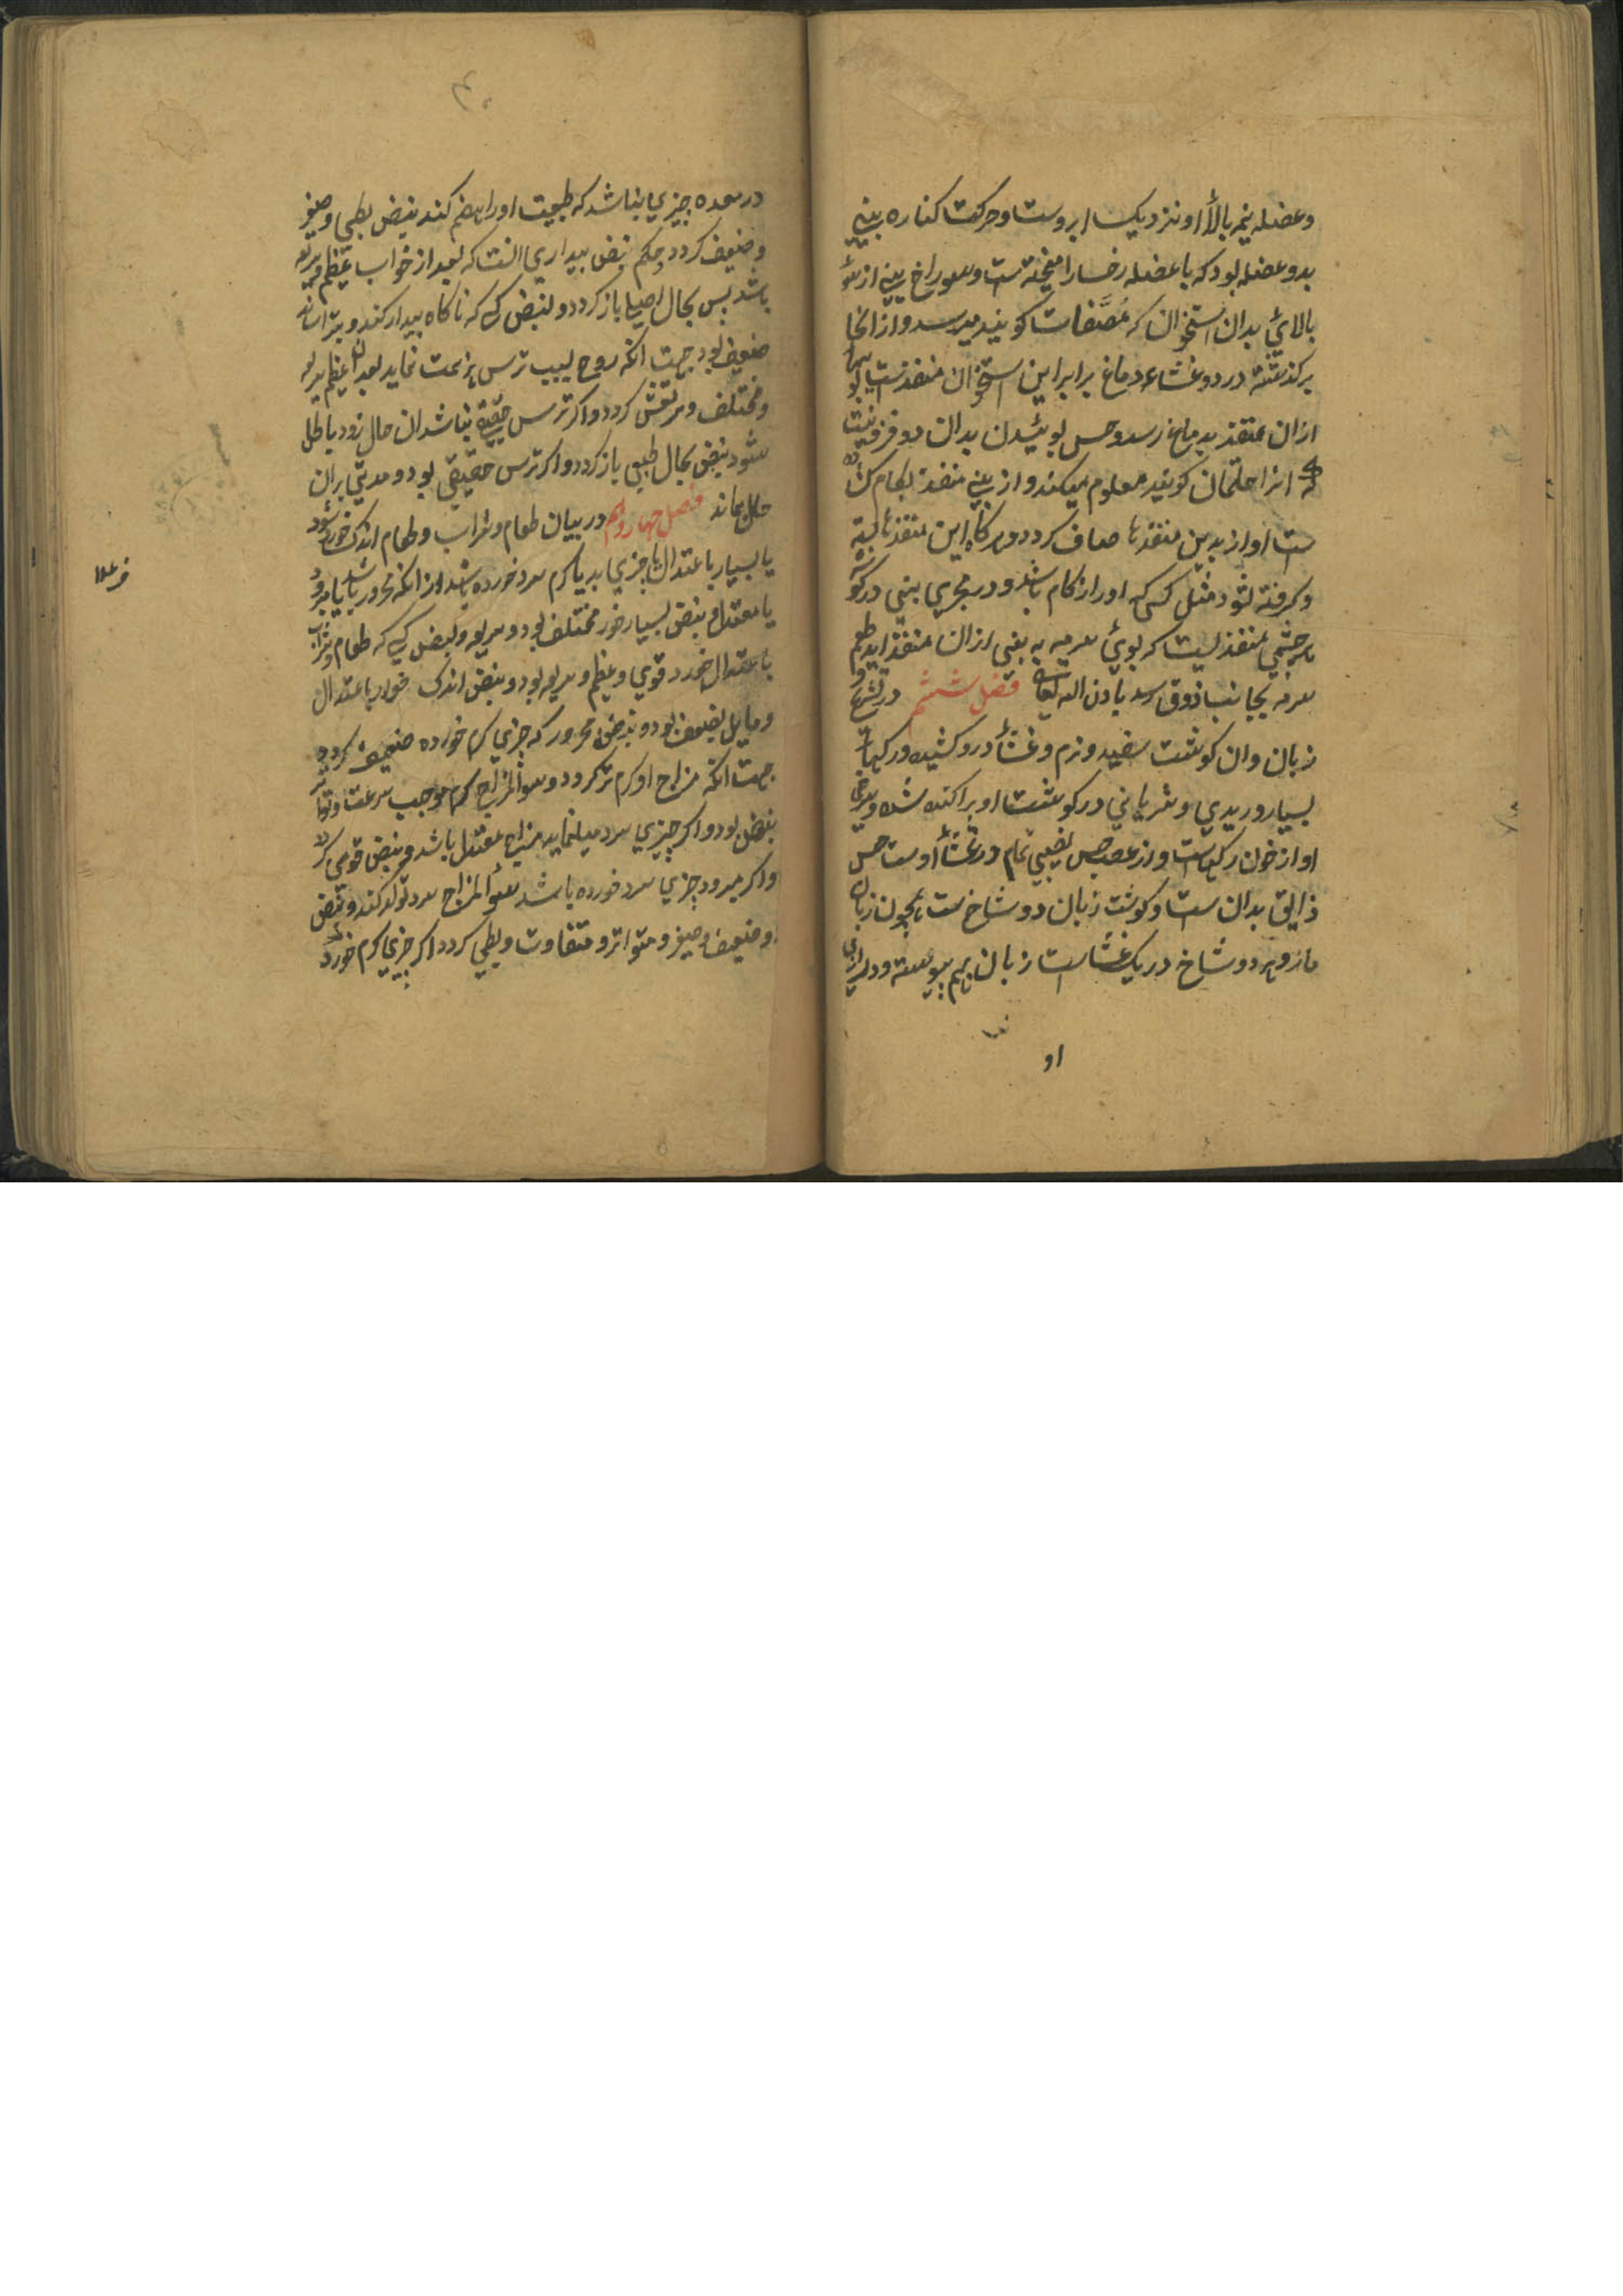 وعضله نیمه بالا او نزدیک ابروست وحرکت کناره بینی
بدو عضله بود که با عضله رخسار امیخته است وسوراخ بینی از سوی
بالائی بدان استخوان که مُصَفّات کویند میرسد و از انجا
برکذشته در دو غشاء دماغ برابر این استخوان منفذیست بویها
ازان منفذ بدماغ رسد وحس بوئیدن بدان دو فزونیست
که انرا حلمتان کویند معلوم میکند واز بینی منفذ بکام
ست اواز بدین منفذها صاف کردد وهرکاه این منفذها بسته
وکرفته شود مثل کسی که اورا زکام باشد ودر مجری بینی در کوشه
هر چشمی منفذیست که بوئ سرمه به بینی ازان منفذ اید وطعم
سرمه بجانب ذوق رسد باذن الله تعالی فصل ششم در تشریح
زبان وان کوشت سفید ونرم وغشأ درو کشیده ورکهاء
بسیار وریدی وشریانی در کوشت او پراکنده شده وسرخی
او از خون رکهاست واز عصب حس نصیبی تمام در غشأ اوست حس
ذایق بدان ست وکوشت زبان دو شاخ ست همچون زبان
مار وهر دو شاخ در یک غشاست زبان باهم پیوسته ودر
او
در معده چیزی نباشد که طبیعت اورا هضم کند نبض بطی وصغیر
وضعیف کردد وحکم نبض بیداری انست که بعد از خواب عظیم وسریع
باشد پس بحال اصلی باز کردد ونبض کسی که ناکاه بیدار کنند وبترسانند
ضعیف بود جهت انکه روح بسبب ترس هزیمت نماید بعد ازان عظیم وسریع
ومختلف ومرتعش کردد واکر ترس حقیقة نباشد ان حال زود باطل
شود نبض بحال طبیعی باز کردد واکر ترس حقیقی بود ومدتی بران
حال بماند فصل چهاردهم در بیان طعام وشراب وطعام اندک خورده شود
یا بسیار باعتدال یا چیزی بد یا کرم سرد خورده باشد از انکه محرور باشد یا مبرود
یا معتدل ونبض بسیار خور مختلف بود وسریع ونبض کسی که طعام وشراب
باعتدال خورد قوی وعظیم وسریع بود ونبض اندک خوار باعتدال
ومایل بضعف بود ونبض محرور که چیزی کرم خورده ضعیف کردد
جهت انکه مزاج او کرم تر کردد وسوء المزاج کرم موجب سرعت وتواتر
نبض بود واکر چیزی سرد میل نماید مزاج معتدل باشد ونبض قوی کردد
واکر مبرود چیزی سرد خورده باشد سوء المزاج سرد تولد کند ونبض
او ضعیف وصغیر ومتواتر ومتفاوت وبطی کردد اکر چیزی کرم خورد